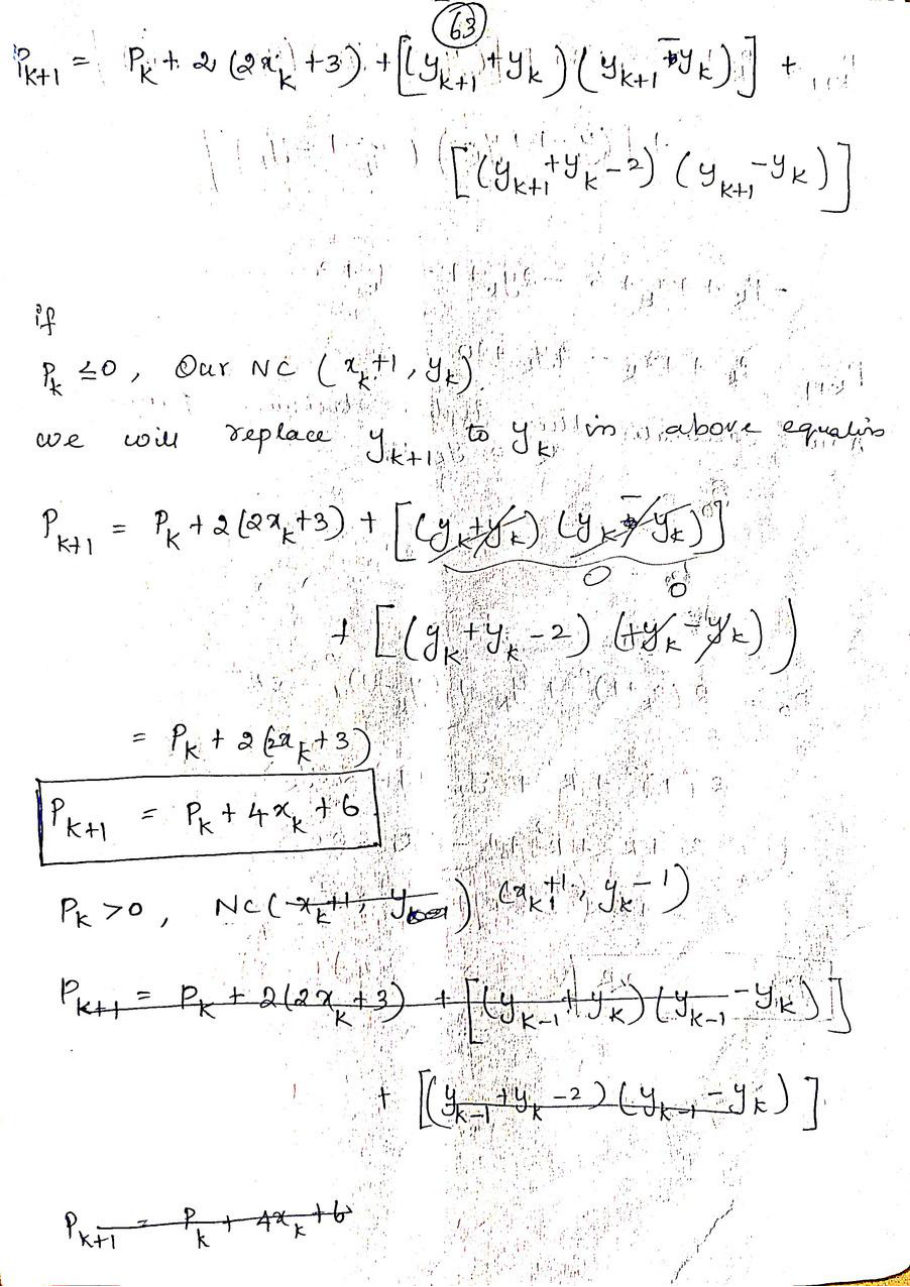 63
P_{k+1} = P_k + 2 (2x_k + 3) + [(y_{k+1} + y_k) (y_{k+1} - y_k)] +
[(y_{k+1} + y_k - 2) (y_{k+1} - y_k)]
if
P_k ≤ 0, Our NC (x_k+1, y_k)
we will replace y_{k+1} to y_k in above equation
P_{k+1} = P_k + 2(2x_k+3) + [(y_k + y_k) (y_k - y_k)]
0 0
+ [(y_k + y_k - 2) (+y_k - y_k))
= P_k + 2(2x_k + 3)
P_{k+1} = P_k + 4x_k + 6
P_k > 0, NC(x_k+1, y) (x_k+1, y_k-1)
P_{k+1} = P_k + 2(2x_k + 3) + [(y_{k-1} + y_k) (y_{k-1} - y_k)]
+ [(y_{k-1} + y_k - 2) (y_{k-1} - y_k)]
P_{k+1} = P_k + 4x_k + 6